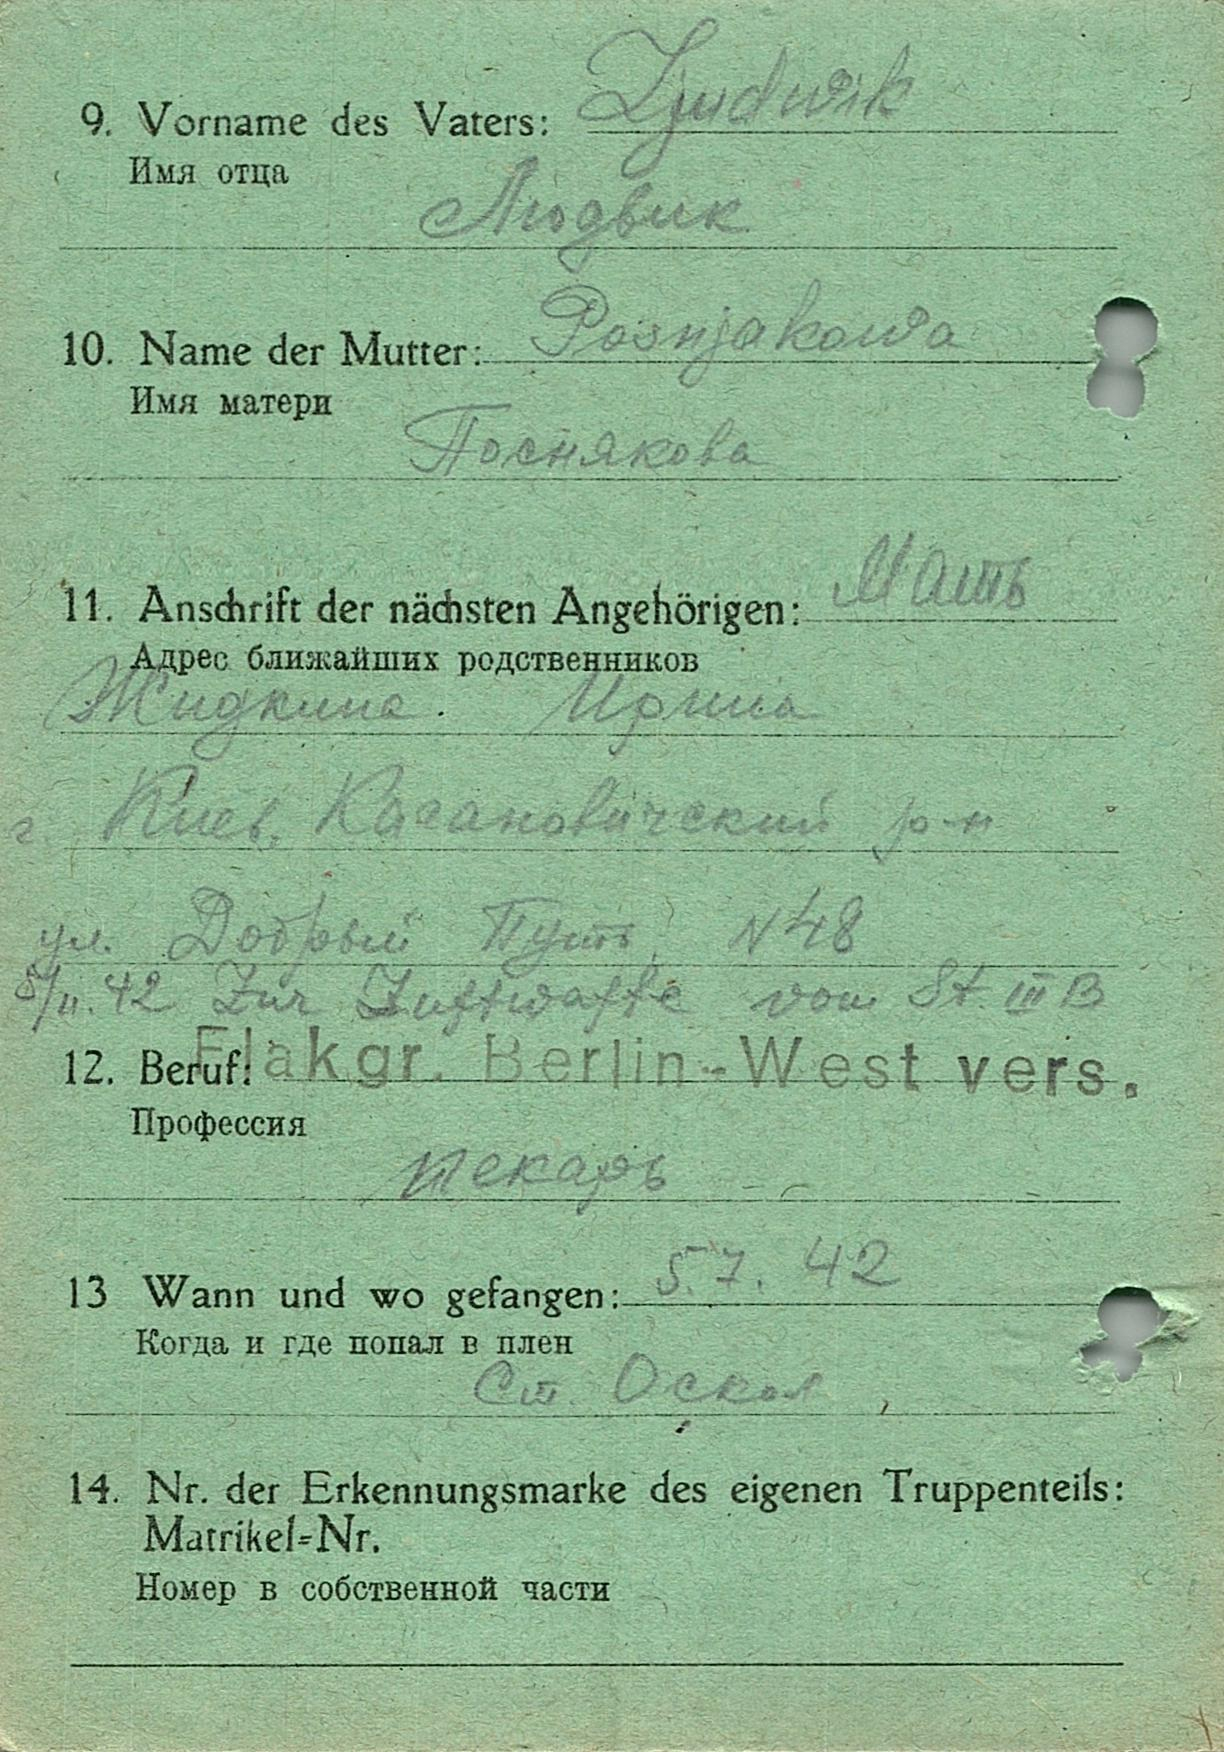 9. Vorname des Vaters: Ljudwik
Имя отца
Людвик
10. Name der Mutter: Posnjakowa
Имя матери
Поснякова
11. Anschrift der nächsten Angehörigen: Мать
Адрес ближайших родственников
Жидкина. Ирина
г. Киев, Кагановический р-н
ул. Добрый Путь, N48
5/II.42 Zur Luftwaffe vom St. III B
Flakgr. Berlin-West vers.
12. Beruf:
Профессия
пекарь
13 Wann und wo gefangen: 5.7.42
Когда и где попал в плен
Ст. Оскол
14. Nr. der Erkennungsmarke des eigenen Truppenteils:
Matrikel-Nr.
Номер в собственной части